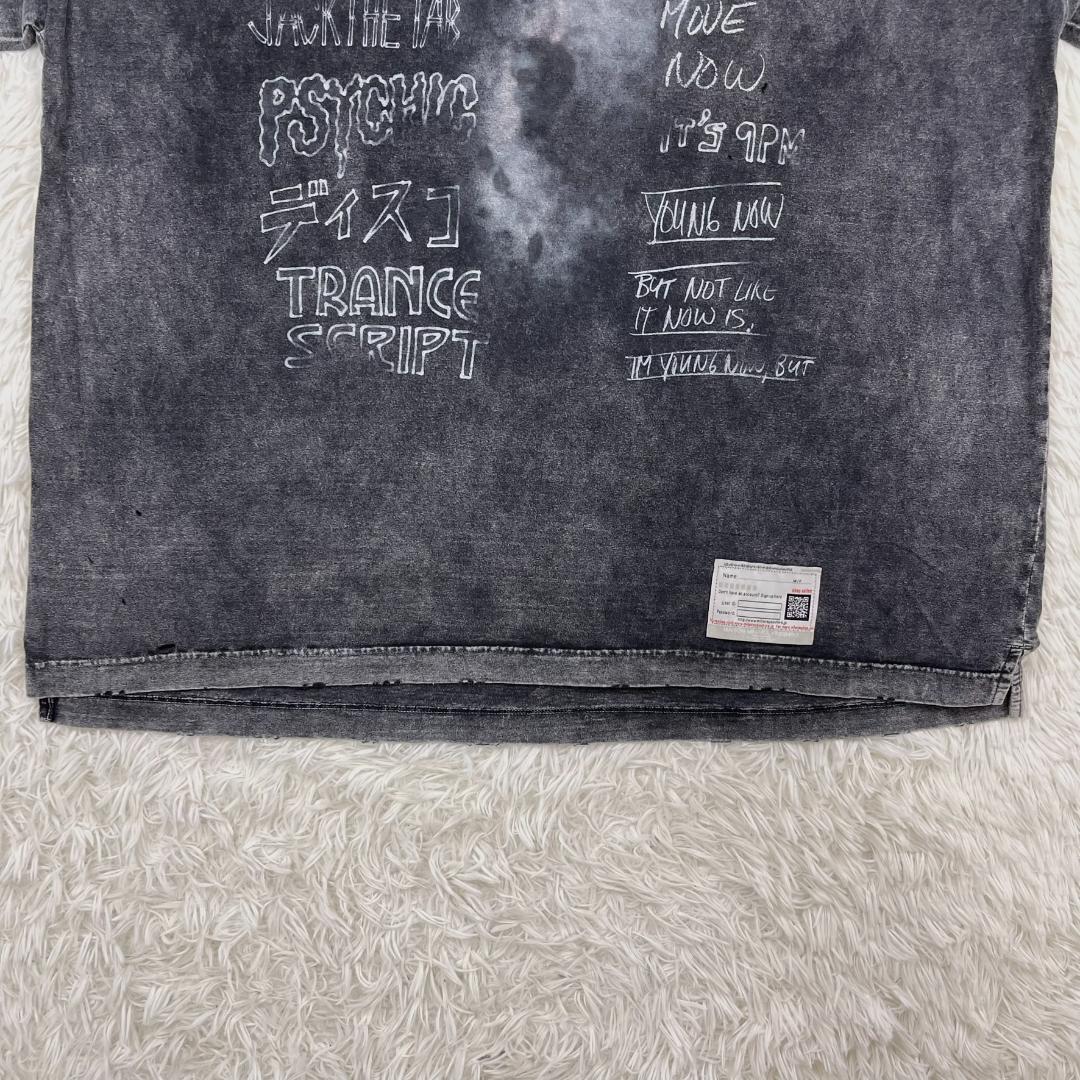 JACK THE TAB
PSYCHIC
ディスコ
TRANCE
SCRIPT
MOVE
NOW.
IT'S 9PM
YOUNG NOW
BUT NOT LIKE
IT NOW IS.
I'M YOUNG NOW, BUT
Name
Don't have an account? Sign up here
User ID
Password